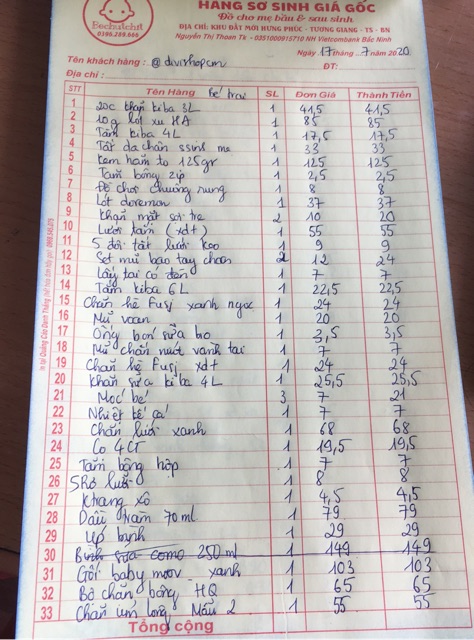 Bochulchit
0196.288.666
HÀNG SƠ SINH GIÁ GỐC
Đồ cho mẹ bầu & sau sinh
ĐỊA CHỈ: KHU ĐẤT MỚI HƯNG PHÚC - TƯƠNG GIANG - TS - BN
Nguyễn Thị Thoan Tk - 0351000915710 NH Vietcombank Bắc Ninh
Ngày 17 tháng 7 năm 2020
Tên khách hàng: @ divishopcm ĐT:
Địa chỉ:
STT Tên Hàng bé trai SL Đơn Giá Thành Tiền
1 20c khăn kiba 3L 1 41,5 41,5
2 10g lót xu HA 1 85 85
3 Tăm kiba 4L 1 17,5 17,5
4 Tất da chân ssinh me 1 33 33
5 kem hăm to 125gr 1 125 125
6 Tăm bông zip 1 2,5 2,5
7 Đồ chơi chuông rung 1 8 8
8 Lót doremon 1 37 37
9 Khăn mặt sợi tre 2 10 20
10 Lưới tắm (xdt) 1 55 55
11 5 đôi tất lưới keo 1 9 9
12 Set mũ bao tay chân 2 12 24
13 Lấy tai có đèn 1 7 7
14 Tăm kiba 6L 1 22,5 22,5
15 Chăn hè Fusj xanh ngọc 1 24 24
16 Mũ voan 1 20 20
17 Ống bón sữa bo 1 3,5 3,5
18 Mũ chăn nuot vành tai 1 7 7
19 Chăn hè Fusj xdt 1 24 24
20 Khăn sữa kiba 4L 1 25,5 25,5
21 Moc bé 3 7 21
22 Nhiệt kế cá 1 7 7
23 Chăn lưới xanh 1 68 68
24 Co 4CT 1 19,5 19,5
25 Tăm bông hộp 1 7 7
26 lưới 1 8 8
27 Khang xô 1 4,5 4,5
28 Dầu tràm 70ml 1 79 79
29 Up bỉnh 1 29 29
30 Bình sữa como 250ml 1 149 149
31 Gối baby moov xanh 1 103 103
32 Bộ chăn bông HQ 1 65 65
33 Chăn lưu long Mẫu 2 1 55 55
Tổng cộng